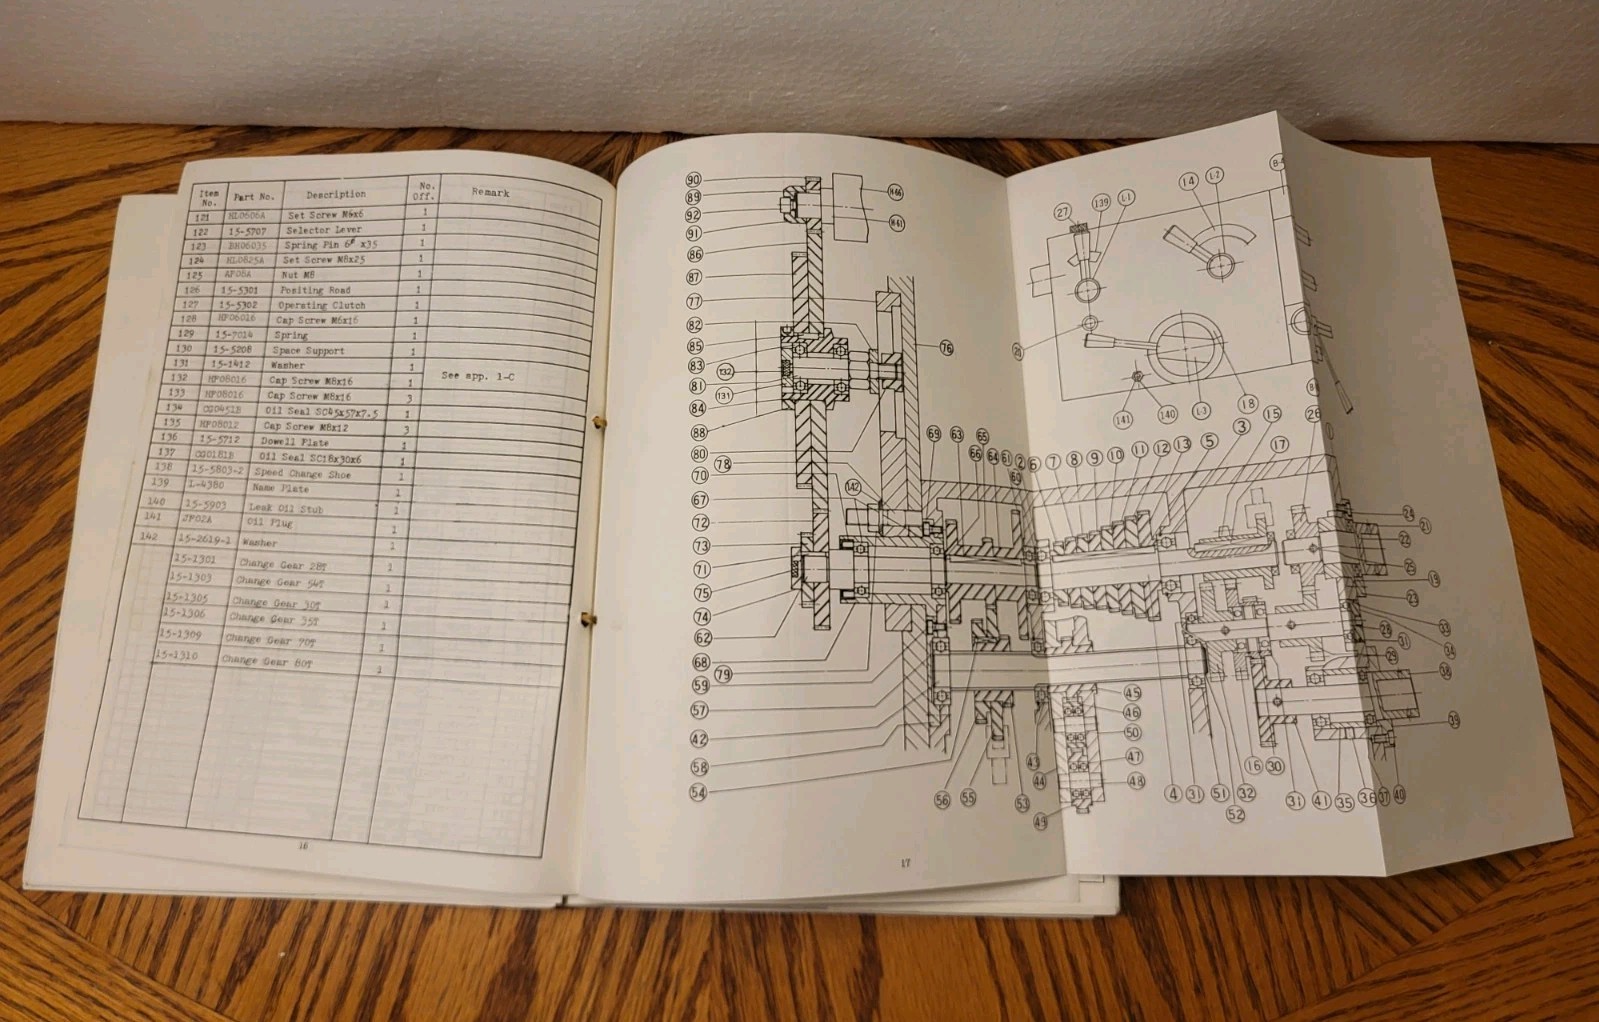 Item No. Part No. Description No. Off. Remark
121 HL0606A Set Screw M6x6 1
122 15-5707 Selector Lever 1
123 BH06035 Spring Pin 6ᵠ x35 1
124 HL0825A Set Screw M8x25 1
125 AF08A Nut M8 1
126 15-5301 Positing Road 1
127 15-5302 Operating Clutch 1
128 HF06016 Cap Screw M6x16 1
129 15-7014 Spring 1
130 15-5208 Space Support 1
131 15-1412 Washer 1 See app. 1-C
132 HF08016 Cap Screw M8x16 1
133 HF08016 Cap Screw M8x16 3
134 CG0451B Oil Seal SC45x57x7.5 1
135 HF08012 Cap Screw M8x12 3
136 15-5712 Dowell Plate 1
137 CG0181B Oil Seal SC18x30x6 1
138 15-5803-2 Speed Change Shoe 1
139 L-4380 Name Plate 1
140 15-5903 Leak Oil Stub 1
141 JP02A Oil Plug 1
142 15-2619-1 Washer 1
15-1301 Change Gear 28T 1
15-1303 Change Gear 54T 1
15-1305 Change Gear 30T 1
15-1306 Change Gear 35T 1
15-1309 Change Gear 70T 1
15-1310 Change Gear 80T 1
16
90
89
92
91
86
87
77
82
85
83
132
81
131
84
88
80
78
70
67
72
73
71
75
74
62
68
79
59
57
42
58
54
H-66
H-61
76
142
69 63 66 65 64 61 60 2 6 7 8 9 10 11 12 13 5 3 15 17 26
27 139 L-1 14 L-2
141 140 L-3 18
24
21
22
25
19
23
33
28 31 34
29 38
39
45
46
50
47
48
49
56 55 53 43 44
4 31 51 52 32 16 30 31 41 35 36 37 40
17